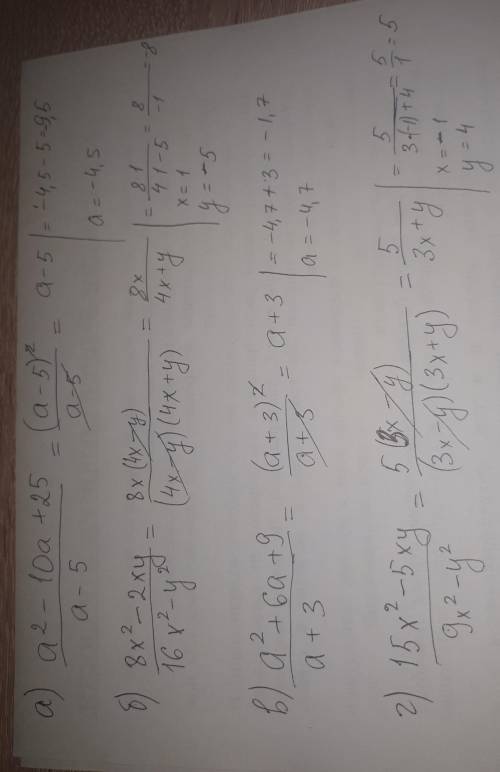 а) (a² - 10a + 25)/(a - 5) = (a - 5)²/(a - 5) = a - 5 | = -4,5 - 5 = -9,5
a = -4,5
б) (8x² - 2xy)/(16x² - y²) = 8x(4x - y)/((4x - y)(4x + y)) = 8x/(4x + y) | = 8·1/(4·1 - 5) = 8/(-1) = -8
x = 1
y = -5
в) (a² + 6a + 9)/(a + 3) = (a + 3)²/(a + 3) = a + 3 | = -4,7 + 3 = -1,7
a = -4,7
г) (15x² - 5xy)/(9x² - y²) = 5(3x - y)/((3x - y)(3x + y)) = 5/(3x + y) | = 5/(3·(-1) + 4) = 5/1 = 5
x = -1
y = 4